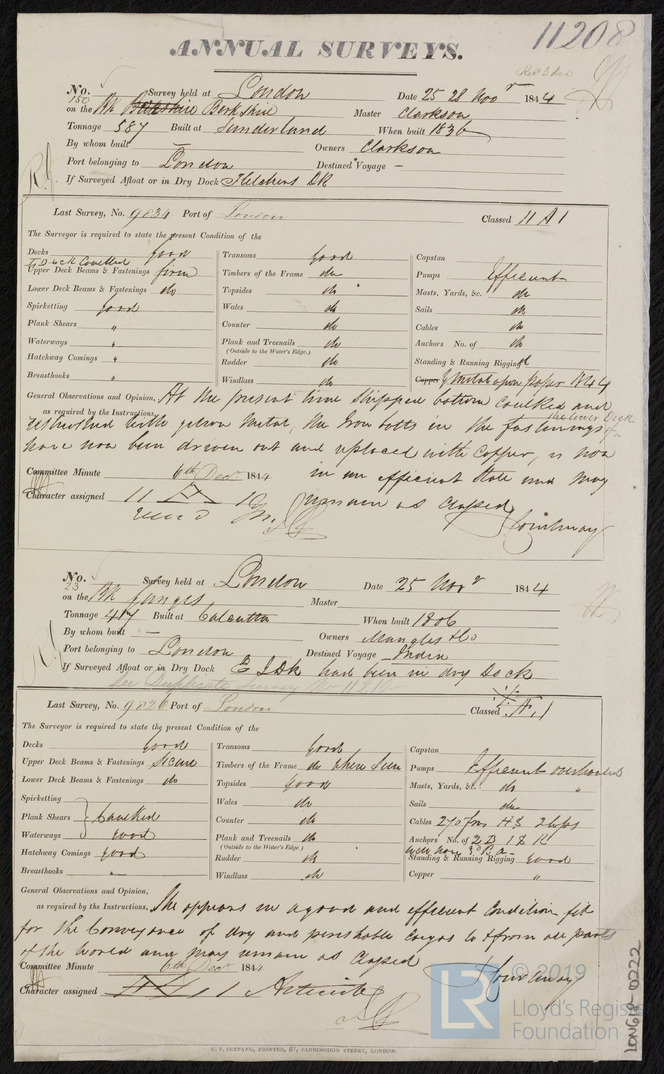 11208
ANNUAL SURVEYS.
No. 150 Survey held at London Date 25 28 Novr 1844
on the Bk Berkshire Master Clarkson
Tonnage 587 Built at Sunderland When built 1836
By whom built — Owners Clarkson
Port belonging to London Destined Voyage —
If Surveyed Afloat or in Dry Dock Fletchers DK
Last Survey, No. 9834 Port of London Classed 11 A1
The Surveyor is required to state the present Condition of the
Decks good Transoms good Capstan
Upper Deck Beams & Fastenings firm Timbers of the Frame do Pumps Efficient
Lower Deck Beams & Fastenings do Topsides do Masts, Yards, &c. do
Spirketting good Wales do Sails do
Plank Shears " Counter do Cables do
Waterways " Plank and Treenails do Anchors No. of do
(Outside to the Water's Edge.)
Hatchway Comings " Rudder do Standing & Running Rigging do
Breasthooks " Windlass do Copper Y Metal upon Paper 1844
General Observations and Opinion, At the present time stripped bottom caulked and
as required by the Instructions, resheathed with yellow metal, the Iron bolts in the fastenings
have now been driven out and replaced with Copper, is now
Committee Minute 6th Decr 1844 in an efficient state and may
Character assigned 11 A 1 remain as classed
Courtenay
No. 23 Survey held at London Date 25 Novr 1844
on the Bk Ganges Master
Tonnage 417 Built at Calcutta When built 1806
By whom built — Owners Mangles & Co
Port belonging to London Destined Voyage India
If Surveyed Afloat or in Dry Dock E I DK had been in dry Dock
Last Survey, No. 9826 Port of London Classed Æ 1
The Surveyor is required to state the present Condition of the
Decks good Transoms good Capstan
Upper Deck Beams & Fastenings Secure Timbers of the Frame do where seen Pumps Efficient overhauled
Lower Deck Beams & Fastenings do Topsides good Masts, Yards, &c. do "
Spirketting Wales do Sails do
Plank Shears Caulked Counter do Cables 270 fms
Waterways good Plank and Treenails do Anchors No. of 2 B 1 S K
(Outside to the Water's Edge.)
Hatchway Comings good Rudder do Standing & Running Rigging good
Breasthooks " Windlass do Copper "
General Observations and Opinion,
as required by the Instructions, She appears in a good and efficient Condition fit
for the Conveyance of dry and perishable Cargos to & from all parts
of the World and may remain as classed
Committee Minute 6th Decr 1844 Courtenay
Character assigned Æ 1
C. F. SEYFANG, PRINTED, 57, FARRINGDON STREET, LONDON.
LON618-0222
LR
© 2019
Lloyd's Register
Foundation